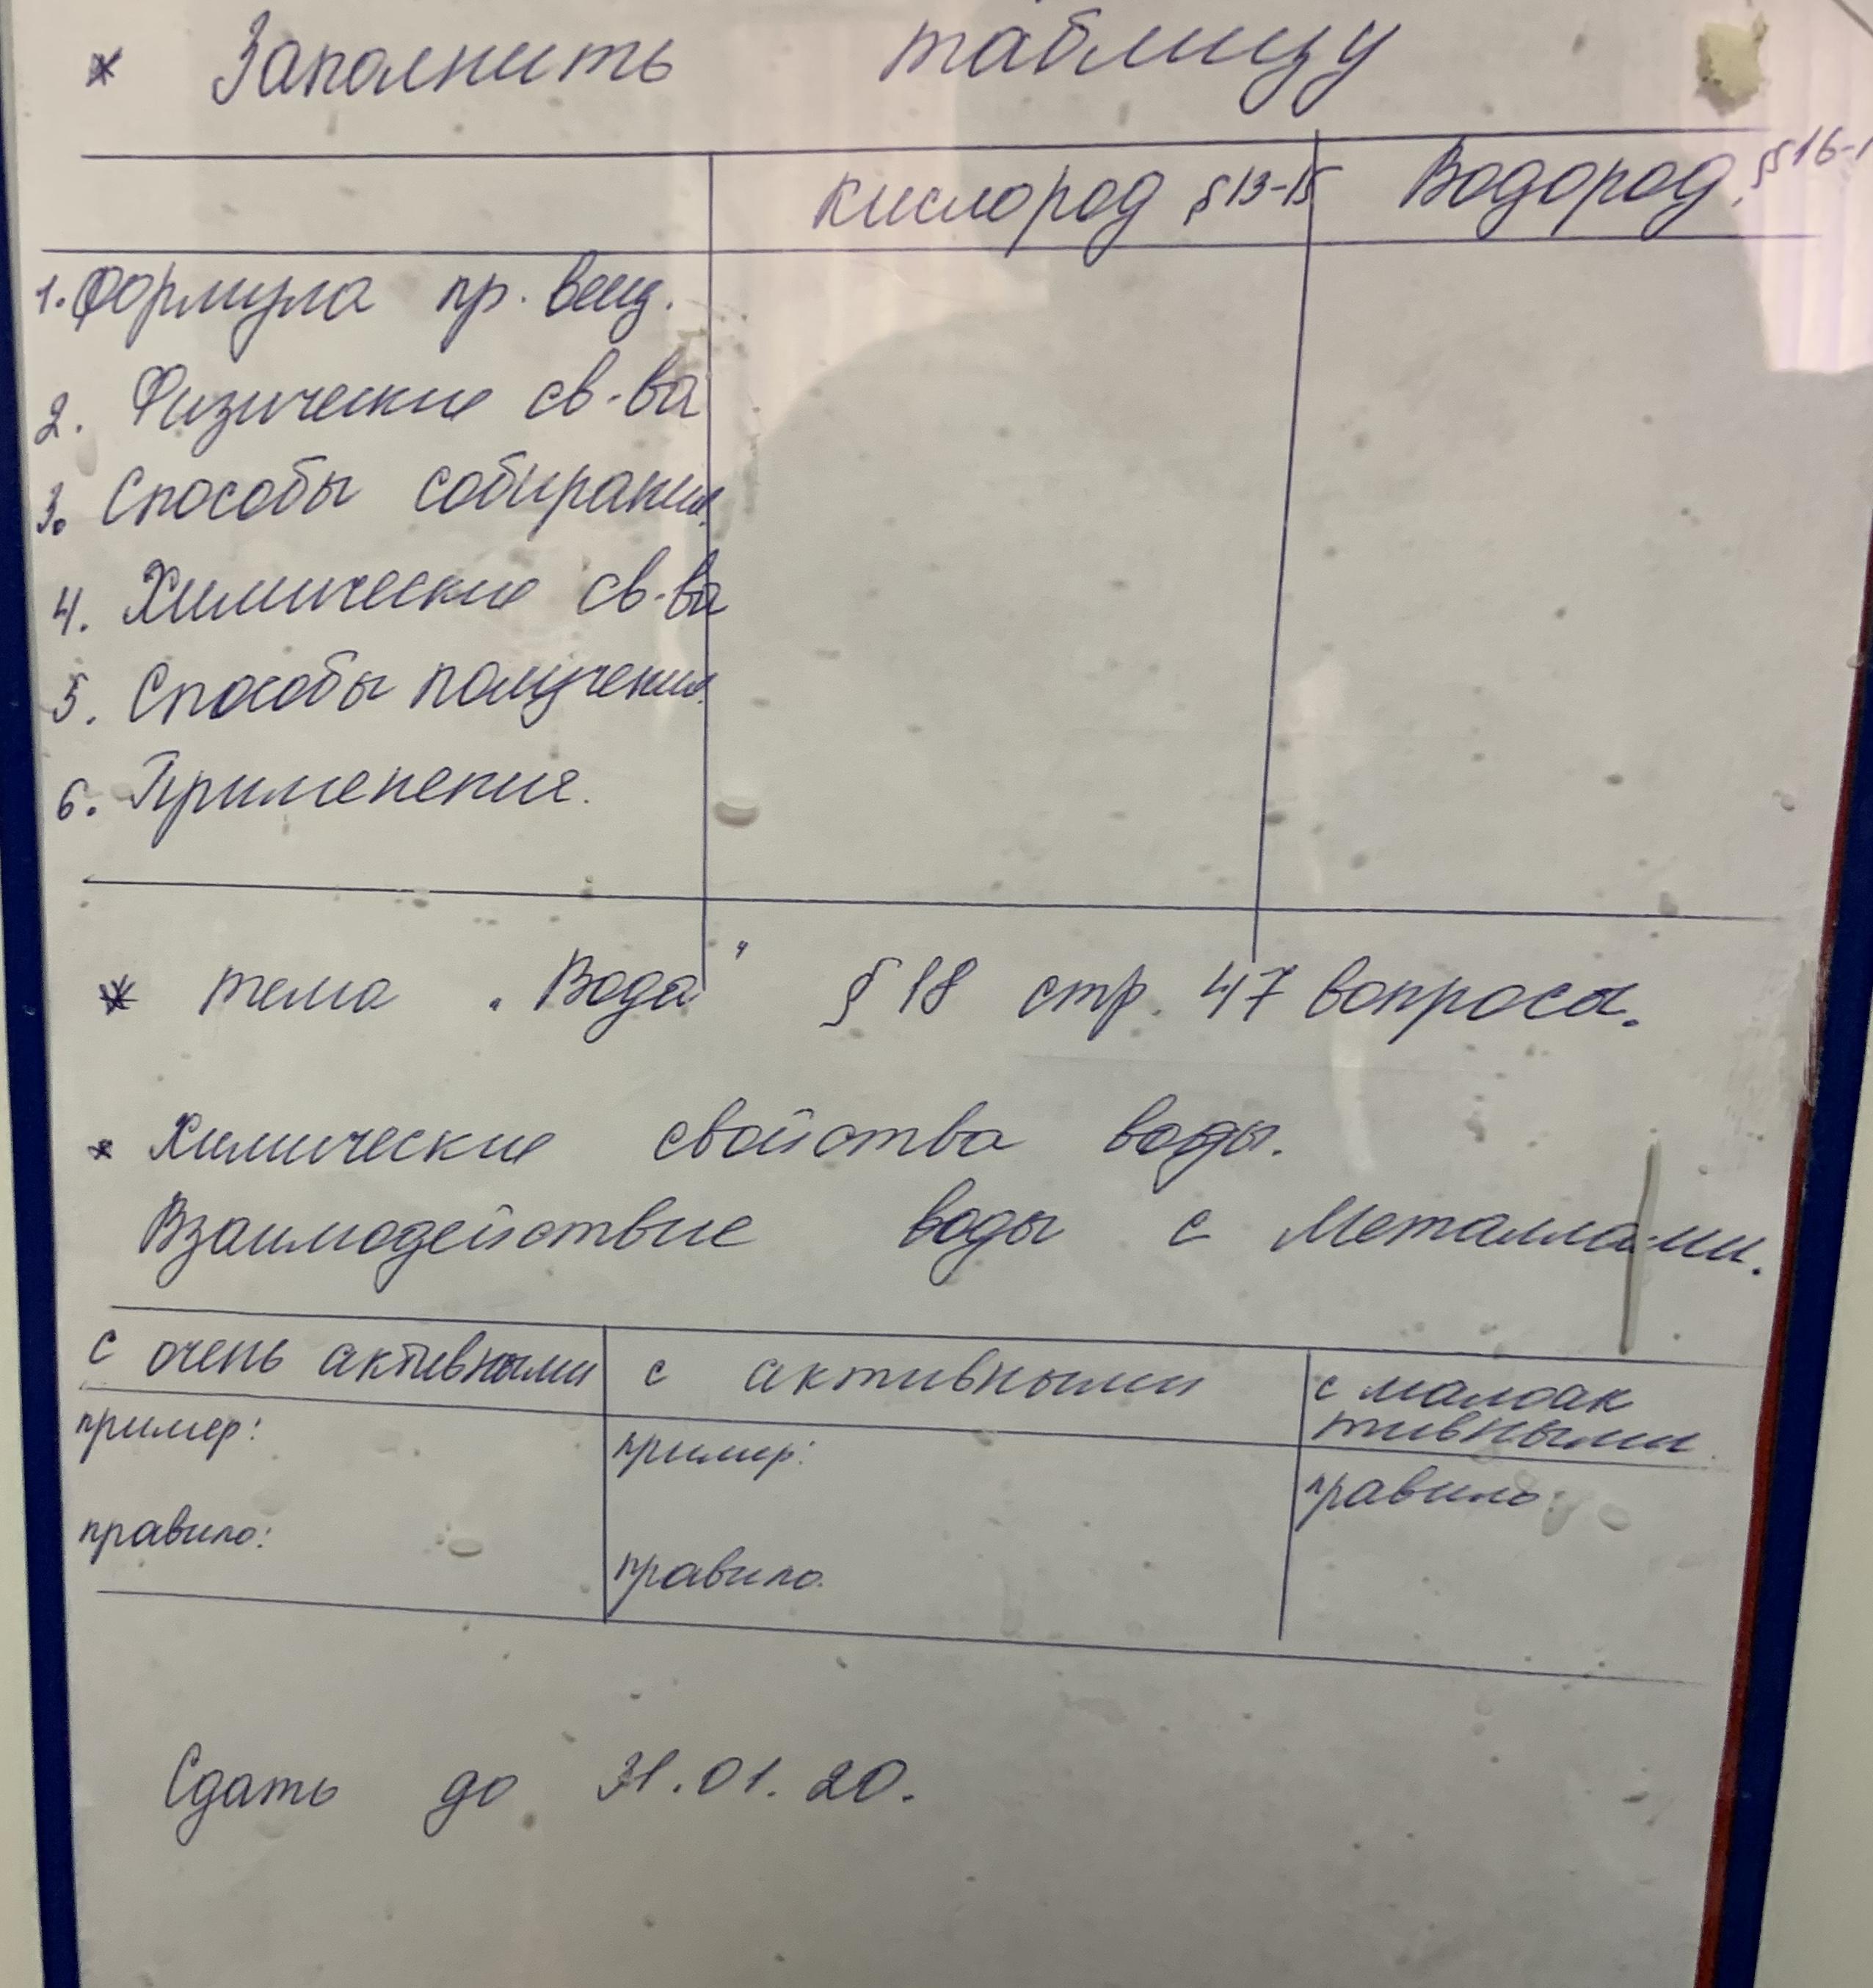 * Заполнить таблицу
кислород § 13-15 Водород. §§ 16-1
1. Формула пр. вещ.
2. Физические св-ва
3. Способы собирания.
4. Химические св-ва
5. Способы получения.
6. Применение.
* тема "Вода" § 18 стр. 47 вопросы.
* Химические свойства воды.
Взаимодействие воды с Металлами.
с очень активными с активными с малоак
тивными.
пример: пример:
правило:
правило: правило.
Сдать до 31.01.20.